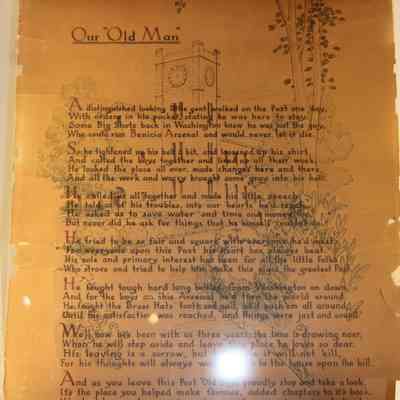 Our "Old Man"
A distinguished looking gent walked on the Post one day,
With orders in his pocket, stating he was here to stay.
Some Big Shots back in Washington knew he was just the guy,
Who could run Benicia Arsenal and would never let it die.
So he tightened up his belt a bit, and loosened up his shirt
And called the boys together and lined up all their work.
He looked the place all over, made changes here and there,
And all the work and worry brought some gray into his hair.
He called us all together and made his little speech,
He told us of his troubles, into our hearts he'd reach
He asked us to save water and time and money too,
But never did he ask for things that he himself would not do.
He tried to be as fair and square with everyone he'd meet
For everyone upon this Post his heart has always beat
His sole and primary interest has been for all the little folks
Who strove and tried to help him make this the greatest Post
He fought tough hard long battles from Washington on down,
And for the boys on this Arsenal he'd the world around.
He fought the Brass Hats tooth and nail, he'd pull 'em all around
Until the satisfaction was reached, and things were just and sound.
Well now he's been with us three years, the time is drawing near,
When he will step aside and leave the place he loves so dear.
His leaving is a sorrow, but it will not kill,
For his thoughts will always to the house upon the hill.
And as you leave this Post Old proudly stop and take a look,
It's the place you helped make famous, added chapters to its book.